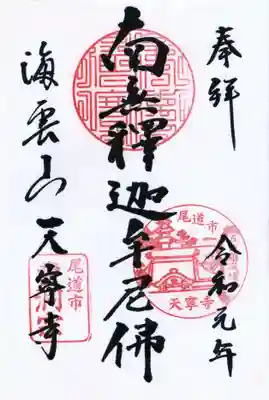 奉拝
令和元年
南無釋迦牟尼佛
海雲山天寧寺
尾道市
天寧寺
尾道市